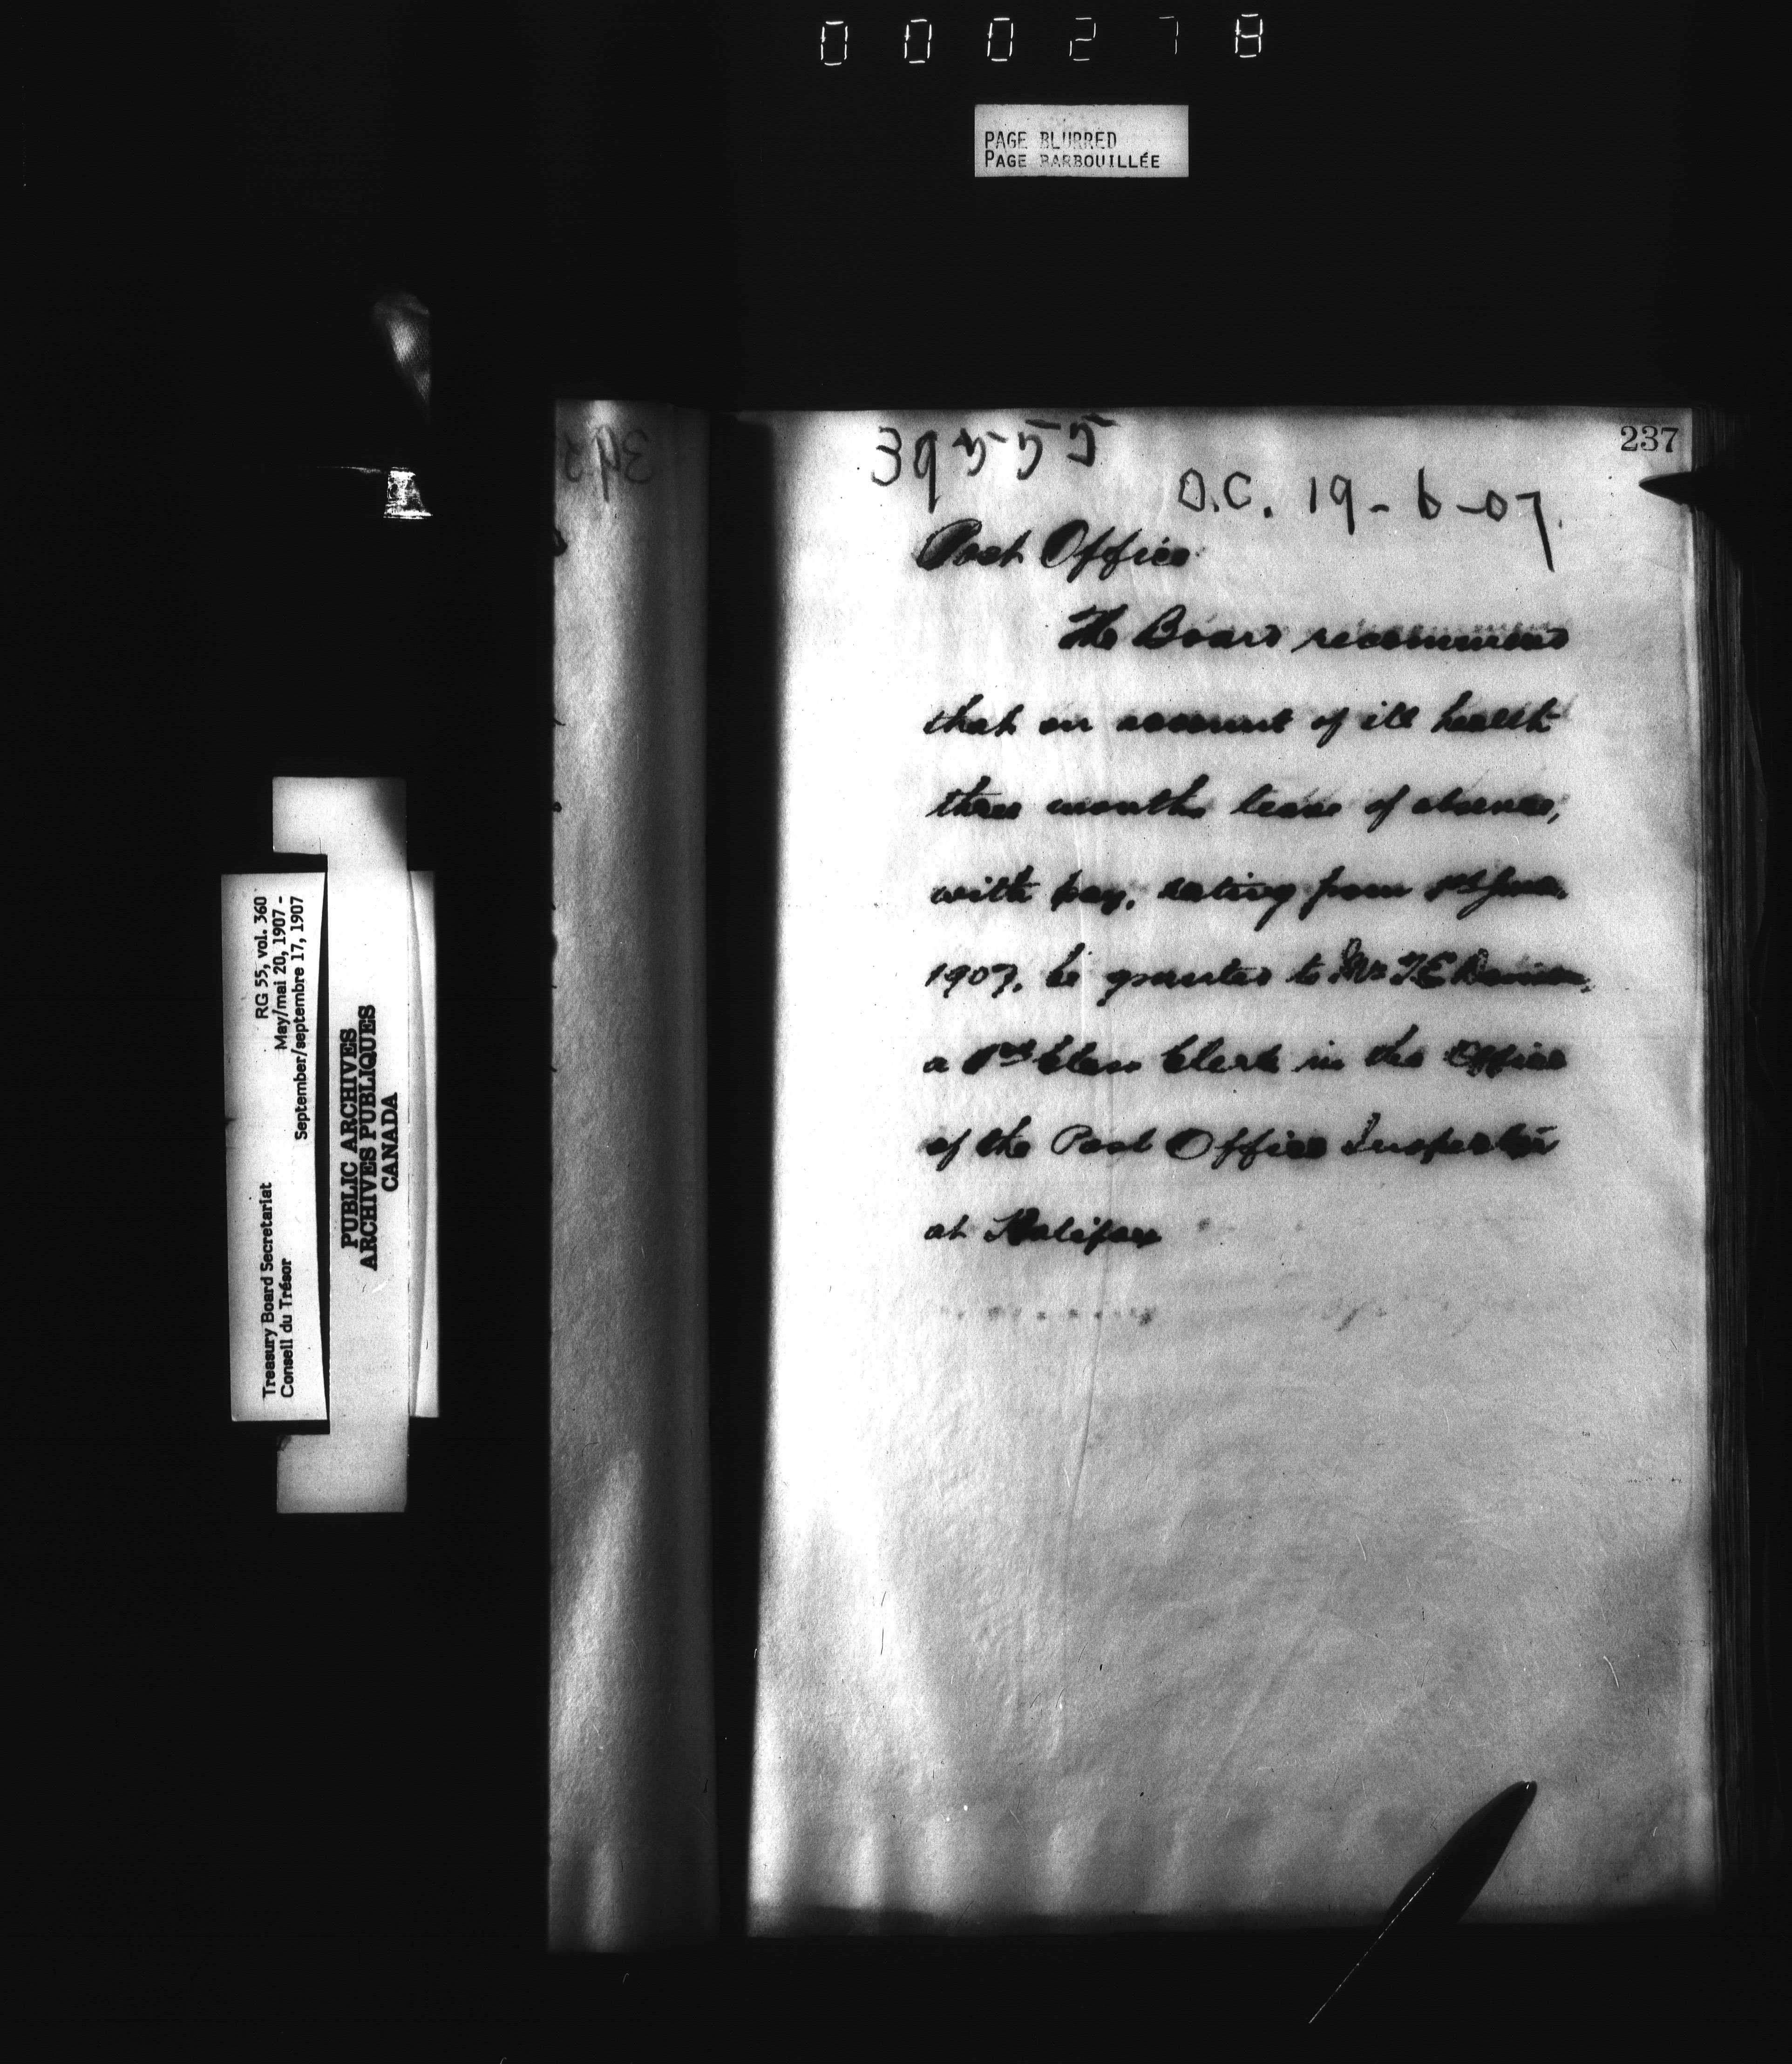 000278
PAGE BLURRED
PAGE BARBOUILLÉE
237
39555
O.C. 19-6-07.
Post Office
The Board recommend
that on account of ill health
three months leave of absence,
with pay, dating from 1st June
1907, be granted to Mr T.E.
a 1st Class Clerk in the Office
of the Post Office Inspector
at Halifax
RG 55, vol. 360
May/mai 20, 1907 -
September/septembre 17, 1907
Treasury Board Secretariat
Conseil du Trésor
PUBLIC ARCHIVES
ARCHIVES PUBLIQUES
CANADA